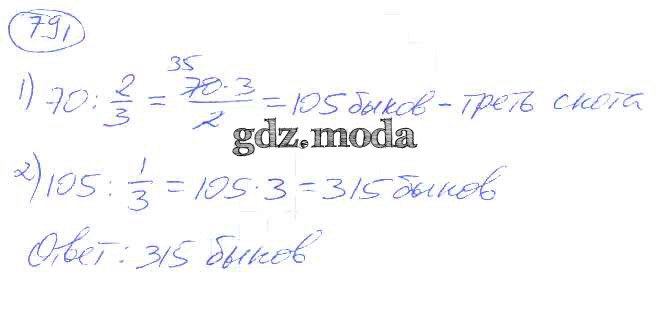 791
1) 70 : 2/3 = 35 70·3/2 = 105 быков – треть скота
gdz.moda
2) 105 : 1/3 = 105·3 = 315 быков
Ответ: 315 быков